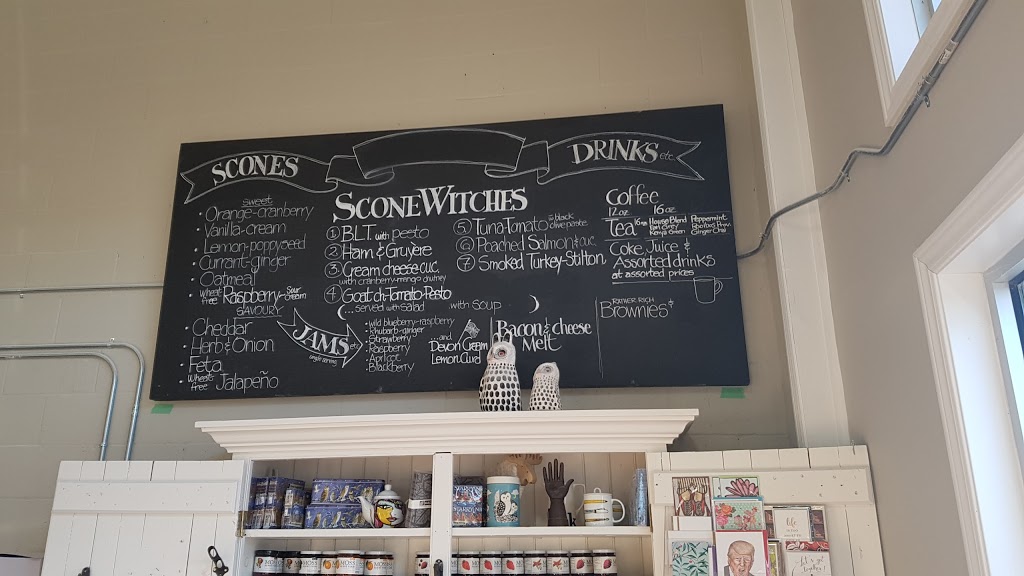 SCONES
sweet
• Orange-cranberry
• Vanilla-cream
• Lemon-poppyseed
• Currant-ginger
• Oatmeal
• Wheat free Raspberry-Sour cream
SAVOURY
• Cheddar
• Herb & Onion
• Feta
• Wheat free Jalapeño
JAMS etc
single serving
SCONEWITCHES
① BLT with pesto
② Ham & Gruyère
③ Cream cheese-cuc.
with cranberry-mango chutney
④ Goat ch-Tomato-Pesto
... served with salad
⑤ Tuna-Tomato with black olive paste
⑥ Poached Salmon & cuc.
⑦ Smoked Turkey-Stilton
with soup
• wild blueberry-raspberry
• Rhubarb-ginger
• Strawberry
• Raspberry
• Apricot
• Blackberry
and
Devon Cream
Lemon Curd
Bacon & cheese
Melt
DRINKS etc.
Coffee
12 oz. 16 oz.
Tea 16oz
House Blend
Earl Grey
Peppermint
Ginger
Coke, Juice &
Assorted drinks
at assorted prices
RATHER RICH
Brownies